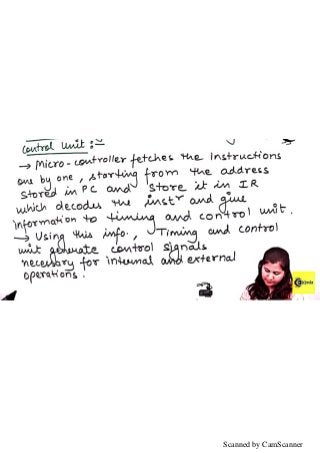 Control Unit :-
→ Micro-controller fetches the instructions
one by one, starting from the address
stored in PC and store it in IR
which decodes the instr and give
information to timing and control unit.
→ Using this info., Timing and control
unit generate control signals
necessary for internal and external
operations.
Scanned by CamScanner